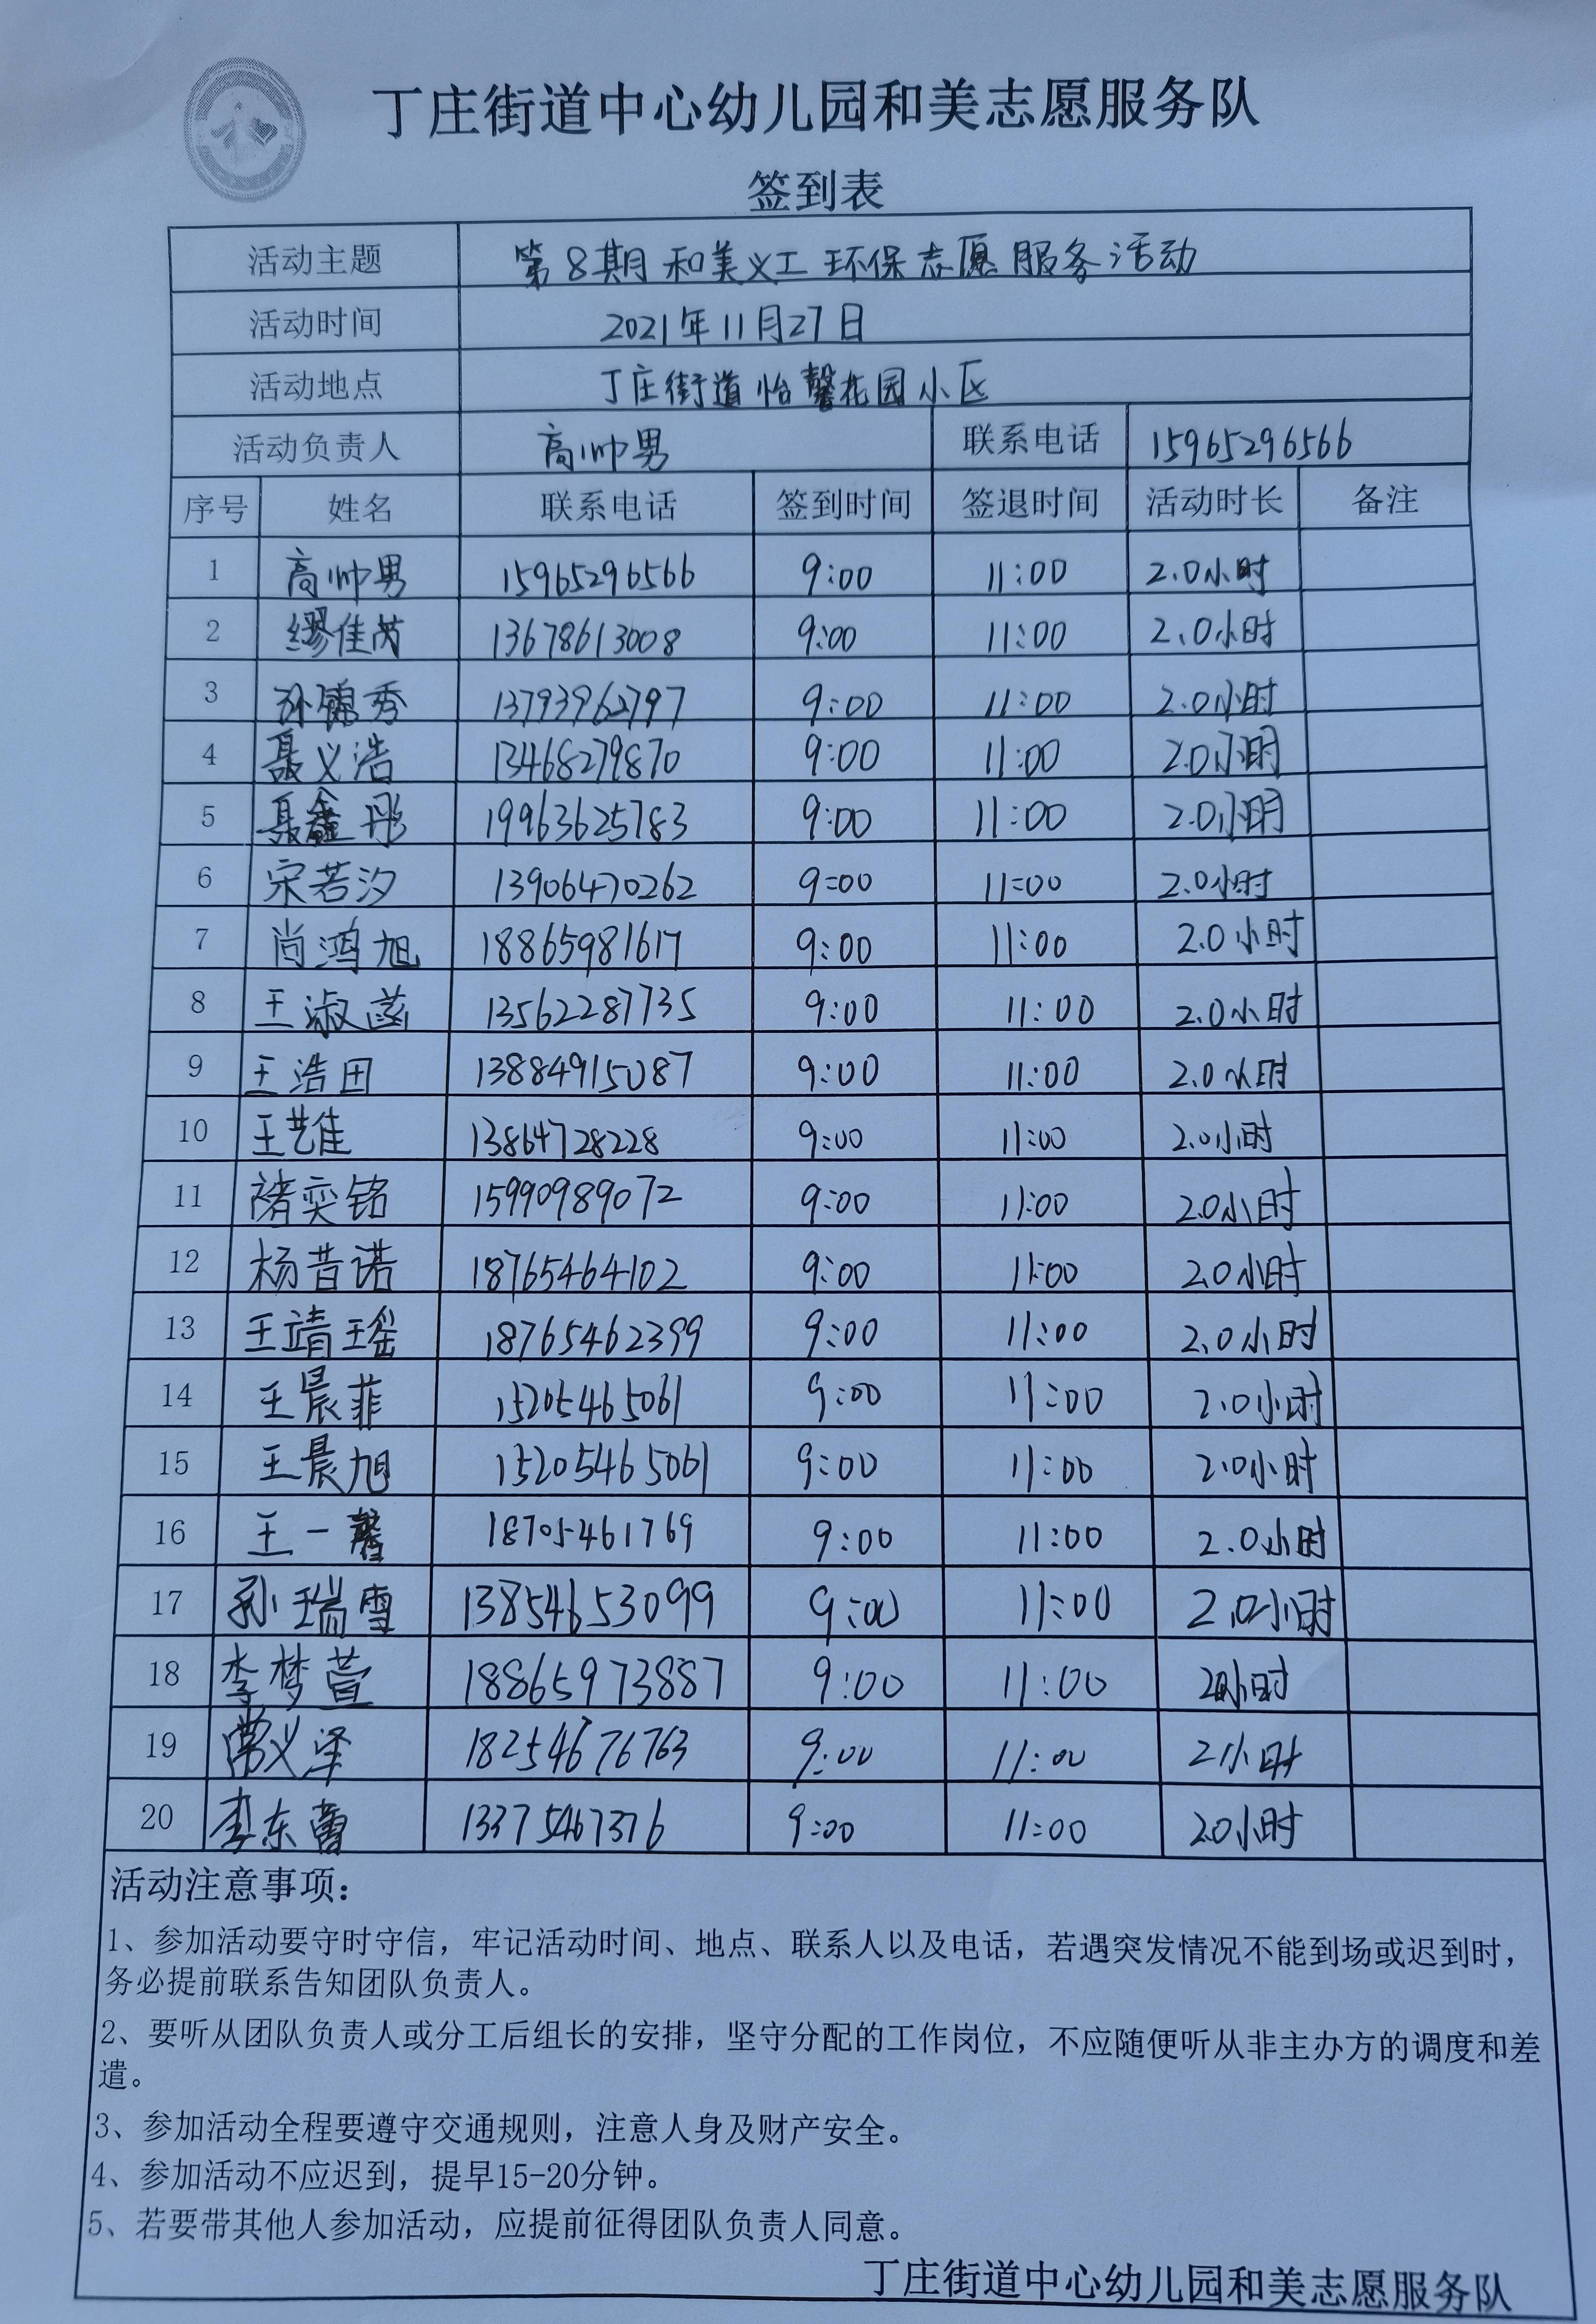 丁庄街道中心幼儿园和美志愿服务队
签到表
活动主题 第8期和美义工环保志愿服务活动
活动时间 2021年11月27日
活动地点 丁庄街道怡馨花园小区
活动负责人 高帅男 联系电话 15965296566
序号 姓名 联系电话 签到时间 签退时间 活动时长 备注
1 高帅男 15965296566 9:00 11:00 2.0小时
2 缪佳芮 13678613008 9:00 11:00 2.0小时
3 孙锦秀 13793962797 9:00 11:00 2.0小时
4 聂义浩 13468279870 9:00 11:00 2.0小时
5 聂鑫彤 19963625783 9:00 11:00 2.0小时
6 宋若汐 13906470262 9:00 11:00 2.0小时
7 尚鸿旭 18865981617 9:00 11:00 2.0小时
8 王淑菡 13562287735 9:00 11:00 2.0小时
9 王浩田 13884915087 9:00 11:00 2.0小时
10 王艺佳 13864728228 9:00 11:00 2.0小时
11 褚奕铭 15990989072 9:00 11:00 2.0小时
12 杨昔诺 18765464102 9:00 11:00 2.0小时
13 王靖瑶 18765462399 9:00 11:00 2.0小时
14 王晨菲 15205465061 9:00 11:00 2.0小时
15 王晨旭 15205465061 9:00 11:00 2.0小时
16 王一馨 18705461769 9:00 11:00 2.0小时
17 孙瑞雪 13854653099 9:00 11:00 2.0小时
18 李梦萱 18865973887 9:00 11:00 小时
19 常义泽 18254676763 9:00 11:00 2小时
20 李东蕾 13375467376 9:00 11:00 2.0小时
活动注意事项：
1、参加活动要守时守信，牢记活动时间、地点、联系人以及电话，若遇突发情况不能到场或迟到时，
务必提前联系告知团队负责人。
2、要听从团队负责人或分工后组长的安排，坚守分配的工作岗位，不应随便听从非主办方的调度和差
遣。
3、参加活动全程要遵守交通规则，注意人身及财产安全。
4、参加活动不应迟到，提早15-20分钟。
5、若要带其他人参加活动，应提前征得团队负责人同意。
丁庄街道中心幼儿园和美志愿服务队